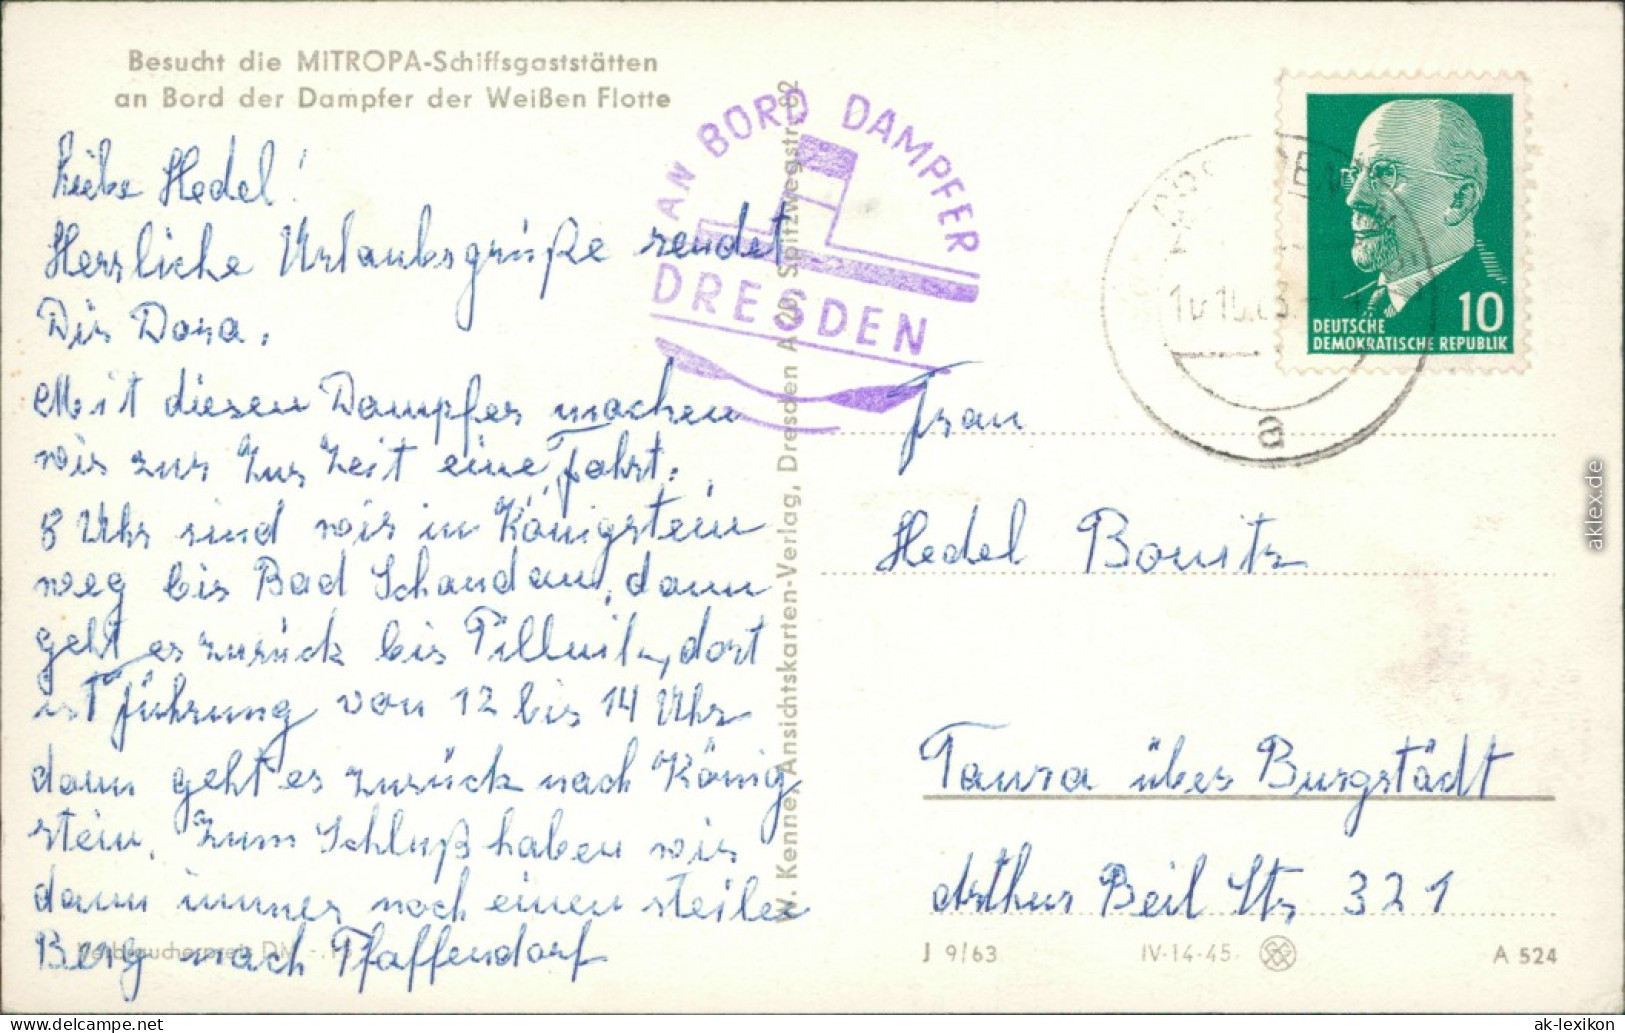 Besucht die MITROPA-Schiffsgaststätten
an Bord der Dampfer der Weißen Flotte
Liebe Hedel!
Herrliche Urlaubsgrüße sendet
Dir Dora.
Mit diesen Dampfer machen
wir zur Zur Zeit eine Fahrt.
8 Uhr sind wir in Königstein
weg bis Bad Schandau, dann
geht es zurück bis Pillnitz, dort
ist Führung von 12 bis 14 Uhr
dann geht es zurück nach König
stein. Zum Schluß haben wir
dann immer noch einen steilen
Berg nach Pfaffendorf
Verbraucherpreis DM
AN BORD DAMPFER
DRESDEN
W. Kenner, Ansichtskarten-Verlag, Dresden A 20, Spitzwegstr. 62
DEUTSCHE
DEMOKRATISCHE REPUBLIK
10
a
Frau
Hedel Bonitz
Taura über Burgstädt
Arthur Beil Str 321
J 9/63 IV-14-45 A 524
aklex.de
www.delcampe.net
ak-lexikon